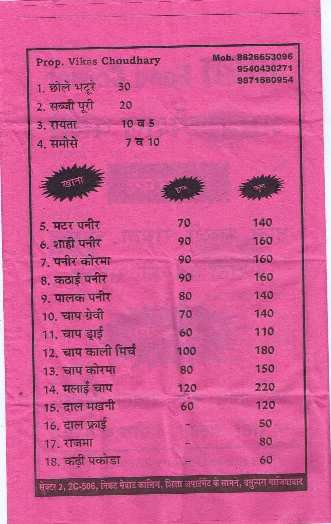 Prop. Vikas Choudhary
Mob. 8826653096
9540430271
9871660954
1. छोले भटूरे 30
2. सब्जी पूरी 20
3. रायता 10 व 5
4. समोसे 7 व 10
खाना हाफ फुल
5. मटर पनीर 70 140
6. शाही पनीर 90 160
7. पनीर कोरमा 90 160
8. कठाई पनीर 90 160
9. पालक पनीर 80 140
10. चाप ग्रेवी 70 140
11. चाप ड्राई 60 110
12. चाप काली मिर्च 100 180
13. चाप कोरमा 80 150
14. मलाई चाप 120 220
15. दाल मखनी 60 120
16. दाल फ्राई - 50
17. राजमा - 80
18. कढ़ी पकोडा - 60
सेक्टर 2, 2C-506, निकट मेवाड कालिज, अपार्टमेंट के सामने, वसुन्धरा गाजियाबाद